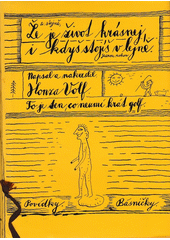 a stejně
Že je život krásnej,
i kdyš stojíš v lejně.
Napsal a nakreslil
Honza Volf
To je ten, co neumí hrát golf.
Povídky Básničky